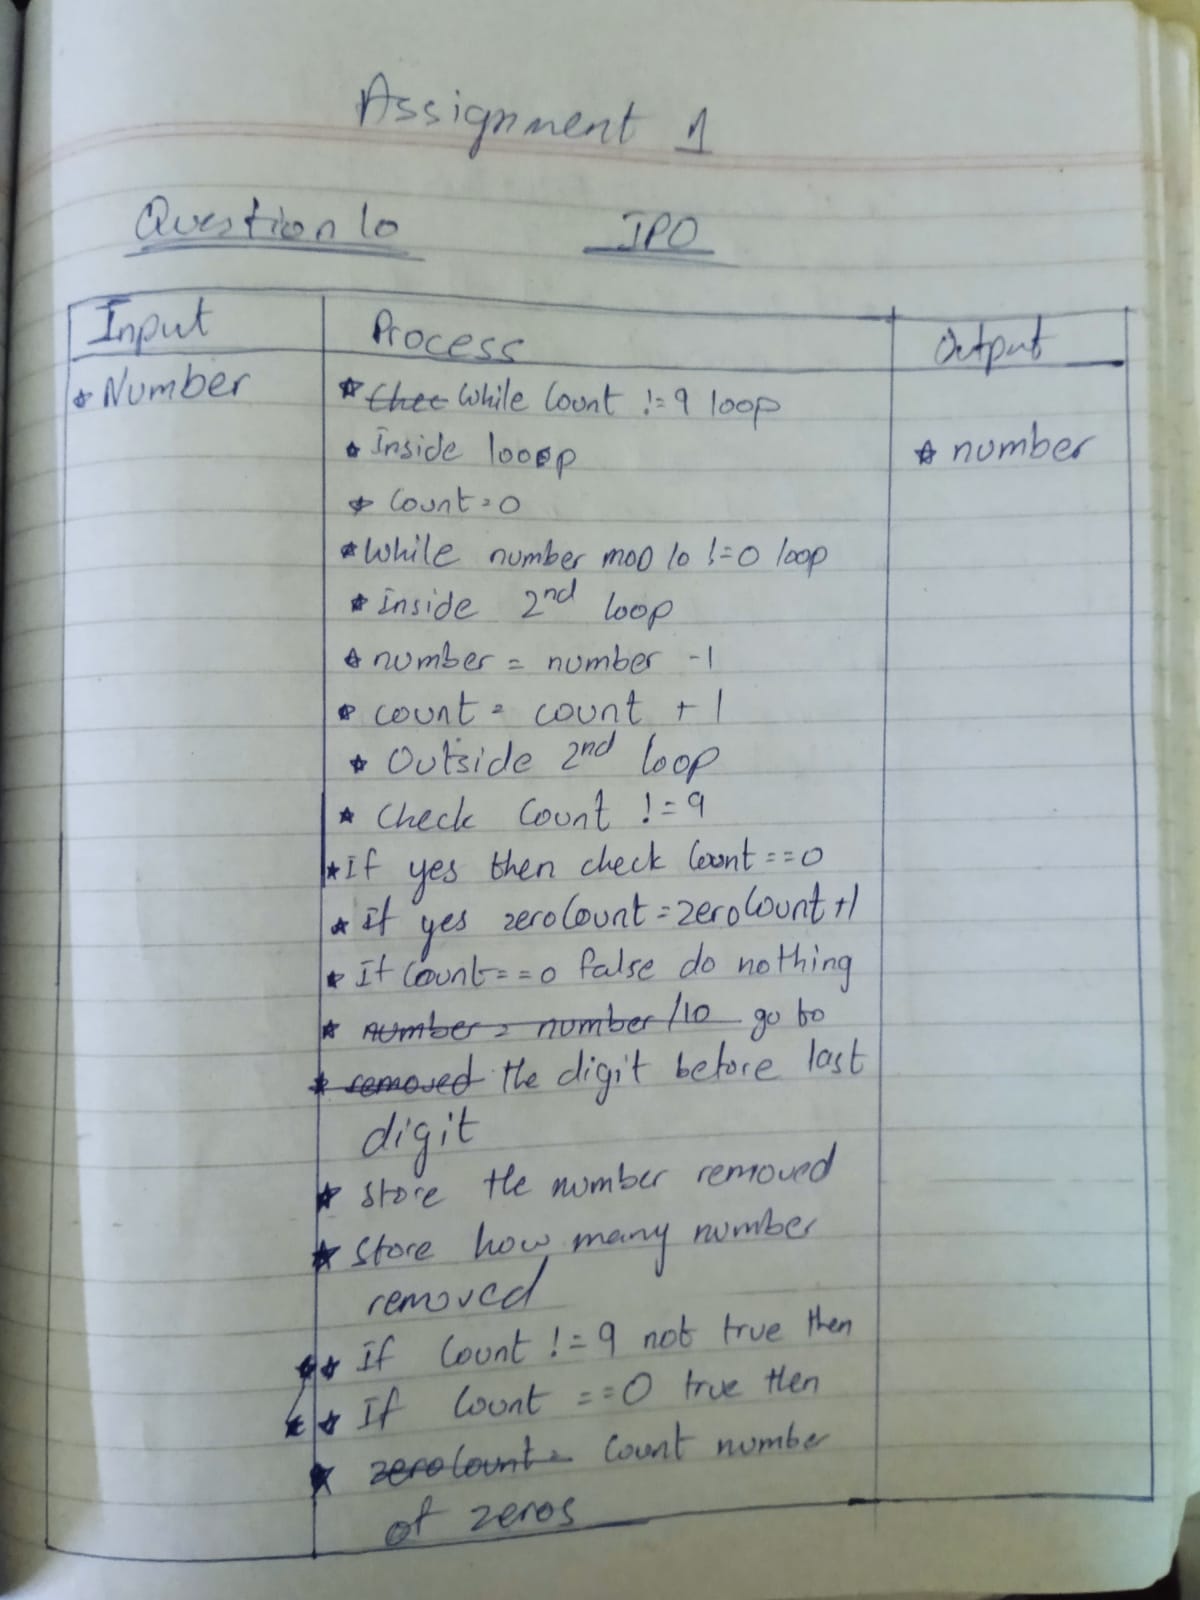 Assignment 1
Question 10 IPO
Input Process Output
* Number
* Chec While Count != 9 loop
* Inside looop
* number
* Count = 0
* While number MOD 10 != 0 loop
* inside 2nd loop
* number = number - 1
* count = count + 1
* Outside 2nd loop
* Check Count != 9
* If yes then check Count == 0
* If yes zeroCount = zeroCount + 1
* If Count == 0 false do nothing
* number = number /10 go to
* removed the digit before last
digit
* Store the number removed
* Store how many number
removed
* If Count != 9 not true then
* If Count == 0 true then
* zeroCount = Count number
of zeros